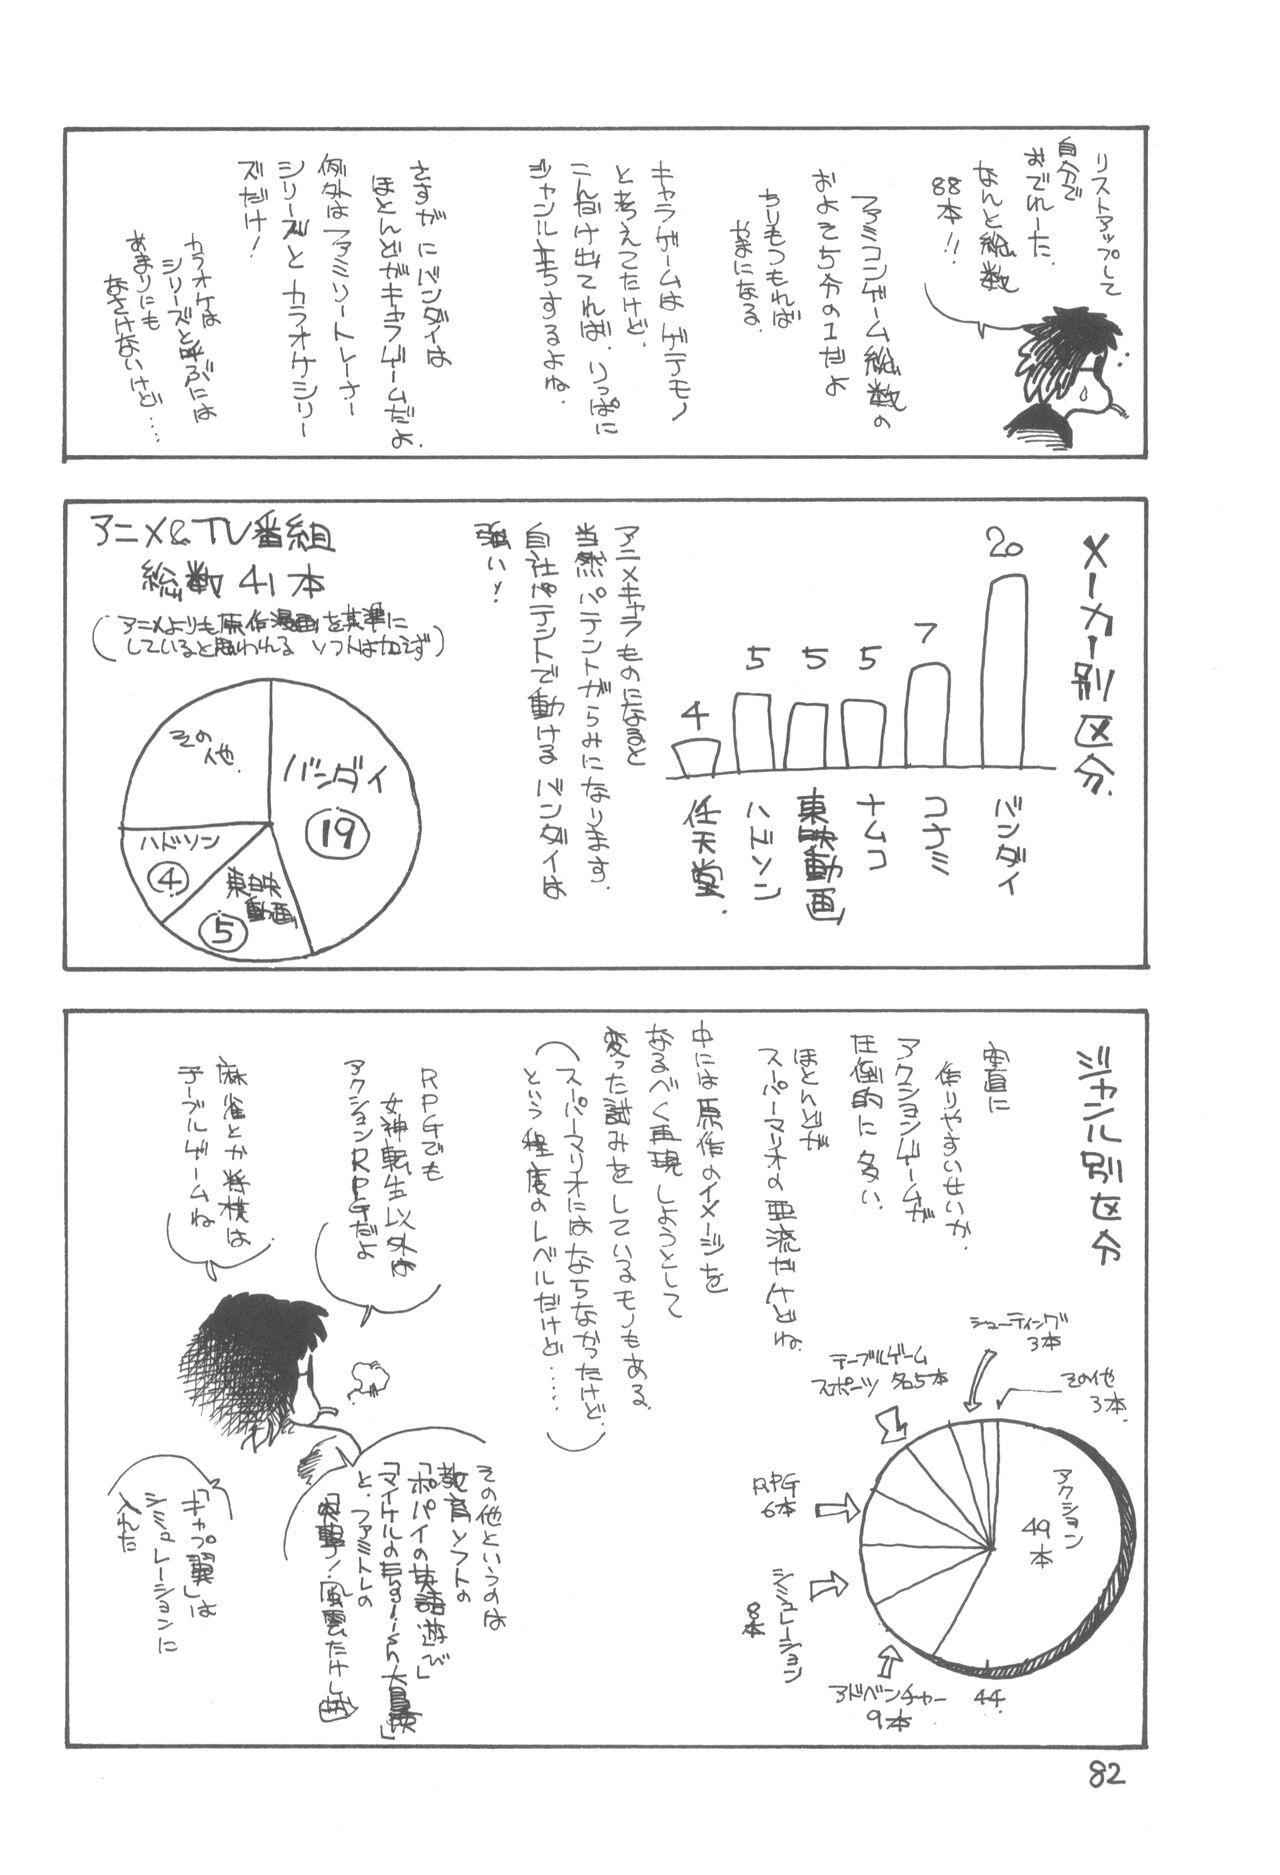 リストアップして
自分で
おでれーた.
なんと総数
88本!!
ファミコンゲーム総数の
およそ5分の1だよ
ちりもつもれば
やまになる.
キャラゲームはゲテモノ
と考えてたけど.
こんだけ出てれば.りっぱに
ジャンル立ちするよね.
さすがにバンダイは
ほとんどがキャラゲームだよ.
例外はファミリートレーナー
シリーズとカラオケシリー
ズだけ!
カラオケは
シリーズと呼ぶには
あまりにも
なさけないけど……
メーカー別区分.
20
7
5
5
5
4
バンダイ
コナミ
ナムコ
東映動画
ハドソン
任天堂.
アニメキャラものになると
当然パテントがらみになります.
自社パテントで動けるバンダイは
強い!
アニメ&TV番組
総数41本
(アニメよりも原作漫画を基準に
していると思われるソフトは加えず)
バンダイ
19
その他.
ハドソン
4
東映動画
5
ジャンル別区分
率直に
作りやすいせいか.
アクションゲームが
圧倒的に多い.
ほとんどが
スーパーマリオの亜流だけどね.
中には原作のイメージを
なるべく再現しようとして
変った試みをしているモノもある.
(スーパーマリオにはならなかったけど.
という程度のレベルだけど……)
シューティング
3本
その他
3本.
テーブルゲーム
スポーツ 各5本
RPG
6本
シミュレーション
8本
アドベンチャー
9本
アクション
49本
44.
RPGでも
女神転生以外は
アクションRPGだよ
麻雀とか将棋は
テーブルゲームね
その他というのは
教育ソフトの
「ポパイの英語遊び」
「マイケルのEnglish大冒険」
と.ファミトレの
「突撃!風雲たけし城」
「キャプ翼」は
シミュレーションに
入れた
82